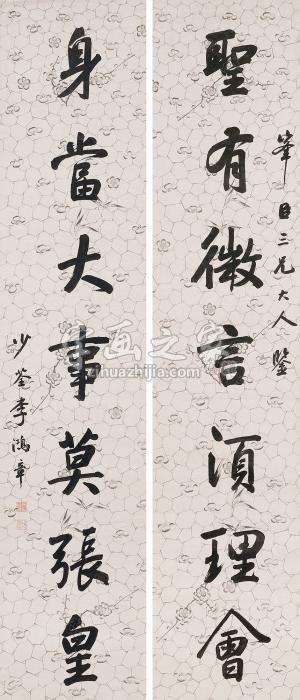 聖有微言須理會
峯日三兄大人鑒
身當大事莫張皇
少荃李鴻章
書画之家
zihuazhijia.com